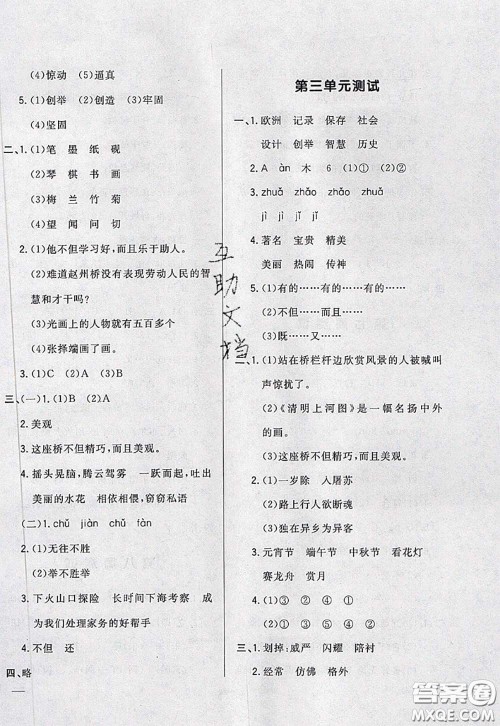 (4)惊动　(5)逼真
5. (1)创举　(2)创造　(3)牢固
(4)坚固
二、1. (1)笔　墨　纸　砚
(2)琴　棋　书　画
(3)梅　兰　竹　菊
(4)望　闻　问　切
2. (1)他不但学习好,而且乐于助人。
(2)难道赵州桥没有表现劳动人民的智
慧和才干吗?
(3)光画上的人物就有五百多个
(4)张择端画了画。
3. (1)C　(2)A　(3)B　(4)A
三、(一)1. (1)B　(2)A
2. 美观
3. 这座桥不但精巧,而且美观。
4. 摇头晃脑,腾云驾雾　一跃而起,吐出
美丽的水花　相依相偎,窃窃私语
(二)1. chǔ　jiàn　chǔ
2. (1)无往不胜
(2)举不胜举
3. 下火山口探险　长时间下海考察　成
为我们处理家务的好帮手
4. 不但　还
四、略
第三单元测试
一、1. 欧洲　记录　保存　社会
设计　创举　智慧　历史
2. A　àn　木　6　(1)①　(2)②
3. zhuǎ　zhǎo　zhǎo　zhuǎ
jī　jǐ　jī　jǐ
4. 著名　宝贵　精美
美丽　热闹　传神
二、1. (1)有的……有的……有的……
(2)不但……而且……
(3)既……又……
2. (1)站在桥栏杆边欣赏风景的人被喊叫
声惊扰了。
(2)《清明上河图》是一幅名扬中外
的画。
1. (1)一岁除　入屠苏
(2)路上行人欲断魂
(3)独在异乡为异客
3. 元宵节　端午节　中秋节　看花灯
赛龙舟　赏月
(1)③　(2)④　(3)②　(4)①
三、1. 划掉:威严　闪耀　陪衬
2. 经常　仿佛　格外
互助文档
答案圈
MXQE.COM